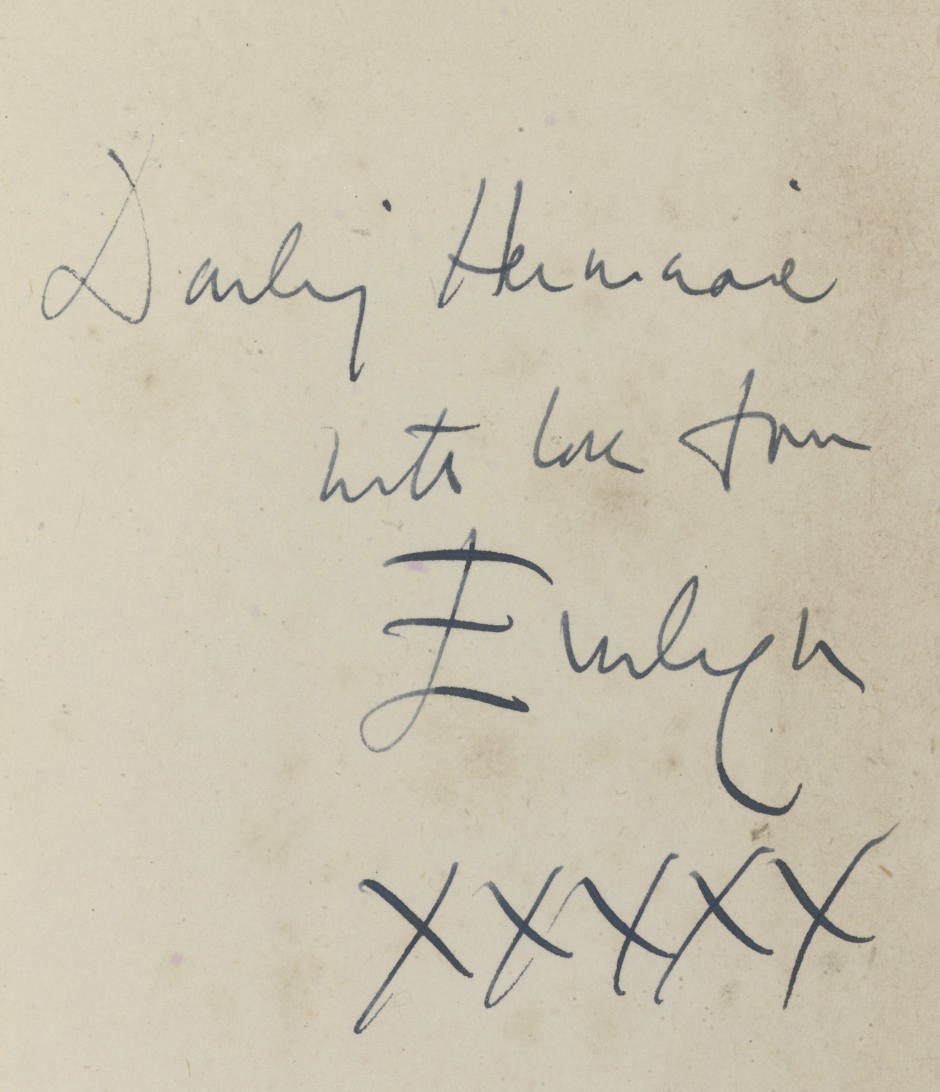 Darling Hermione
with love from
Evelyn
XXXXX